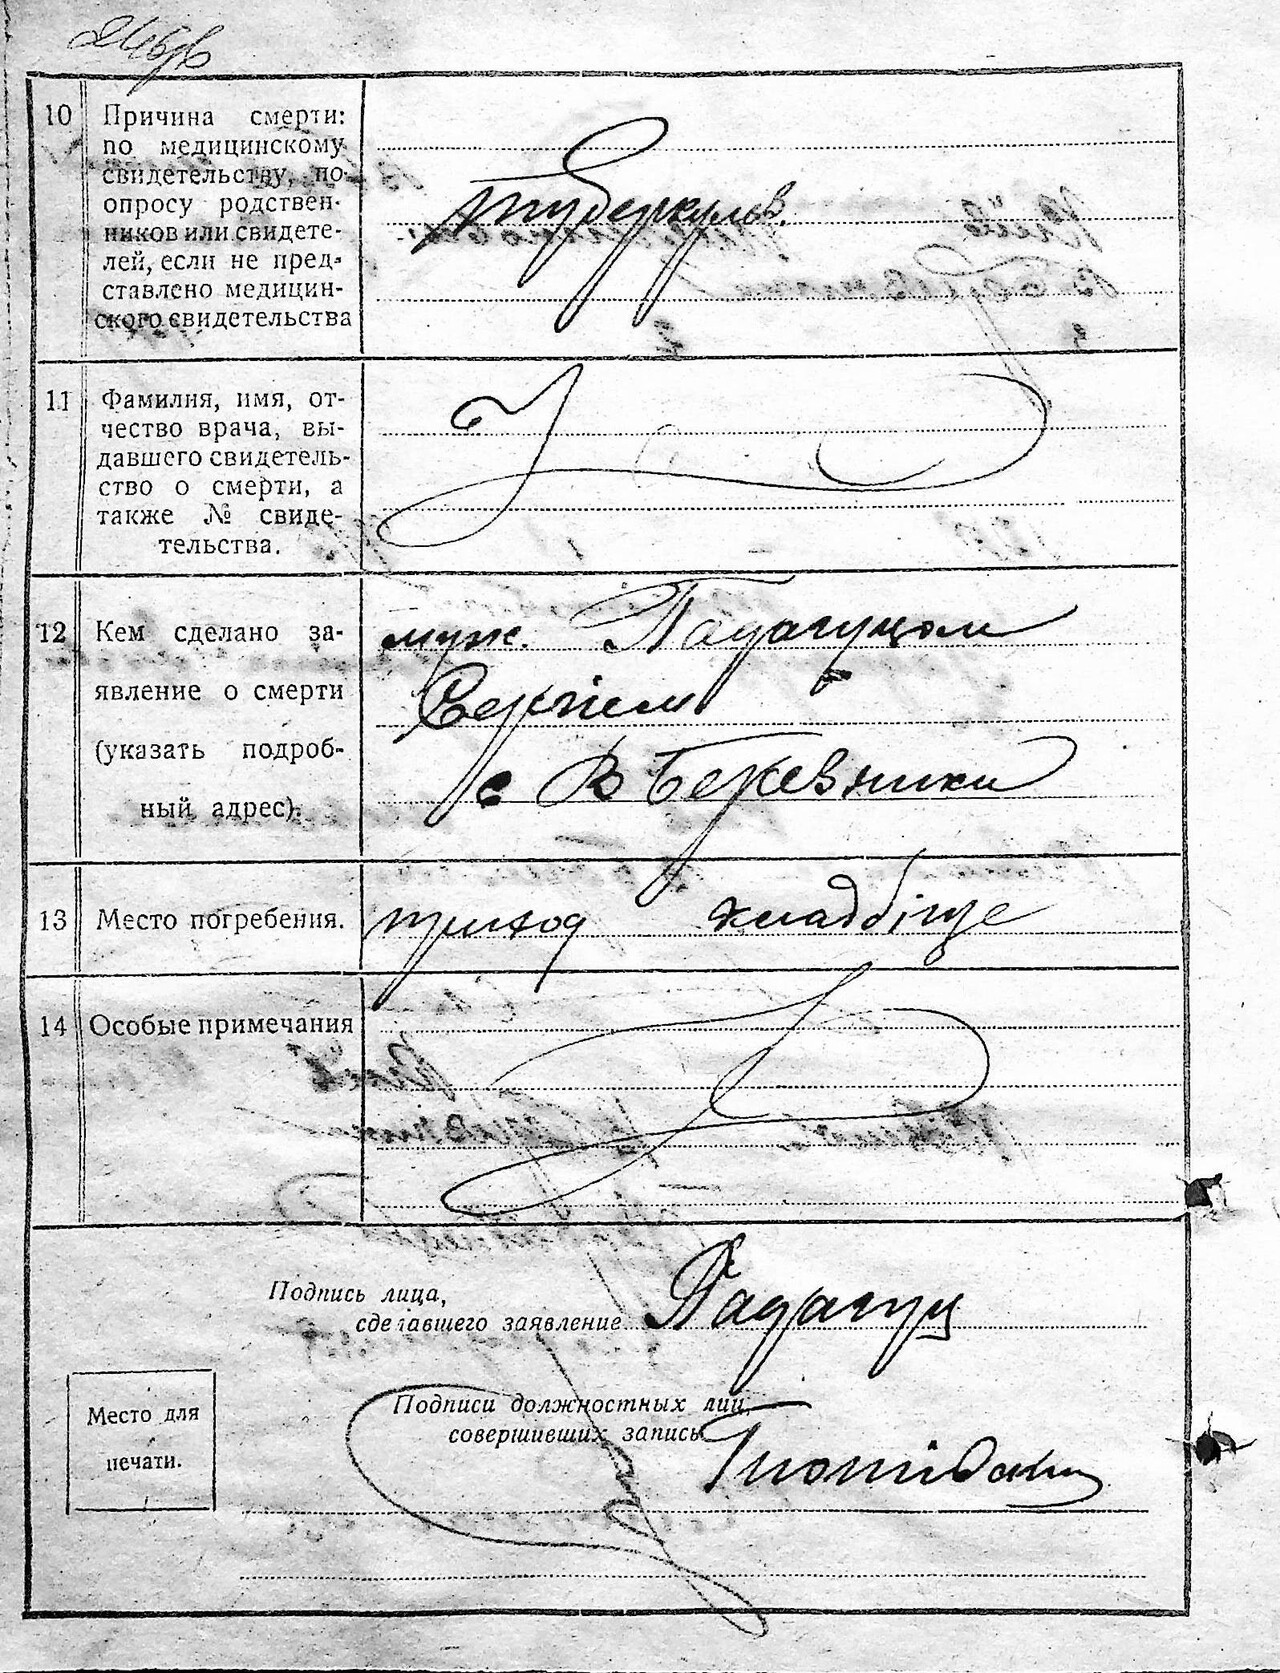 10
Причина смерти:
по медицинскому
свидетельству, по
опросу родствен-
ников или свидете-
лей, если не пред-
ставлено медицин-
ского свидетельства
туберкульоз.
11
Фамилия, имя, от-
чество врача, вы-
давшего свидетель-
ство о смерти, а
также № свиде-
тельства.
12
Кем сделано за-
явление о смерти
(указать подроб-
ный адрес).
муж. Падагуцом
Сергієм
с В Бережники
13
Место погребения.
приход кладбіще
14
Особые примечания
Подпись лица,
сделавшего заявление
Падагуц
Подписи должностных лиц,
совершивших запись
Место для
печати.